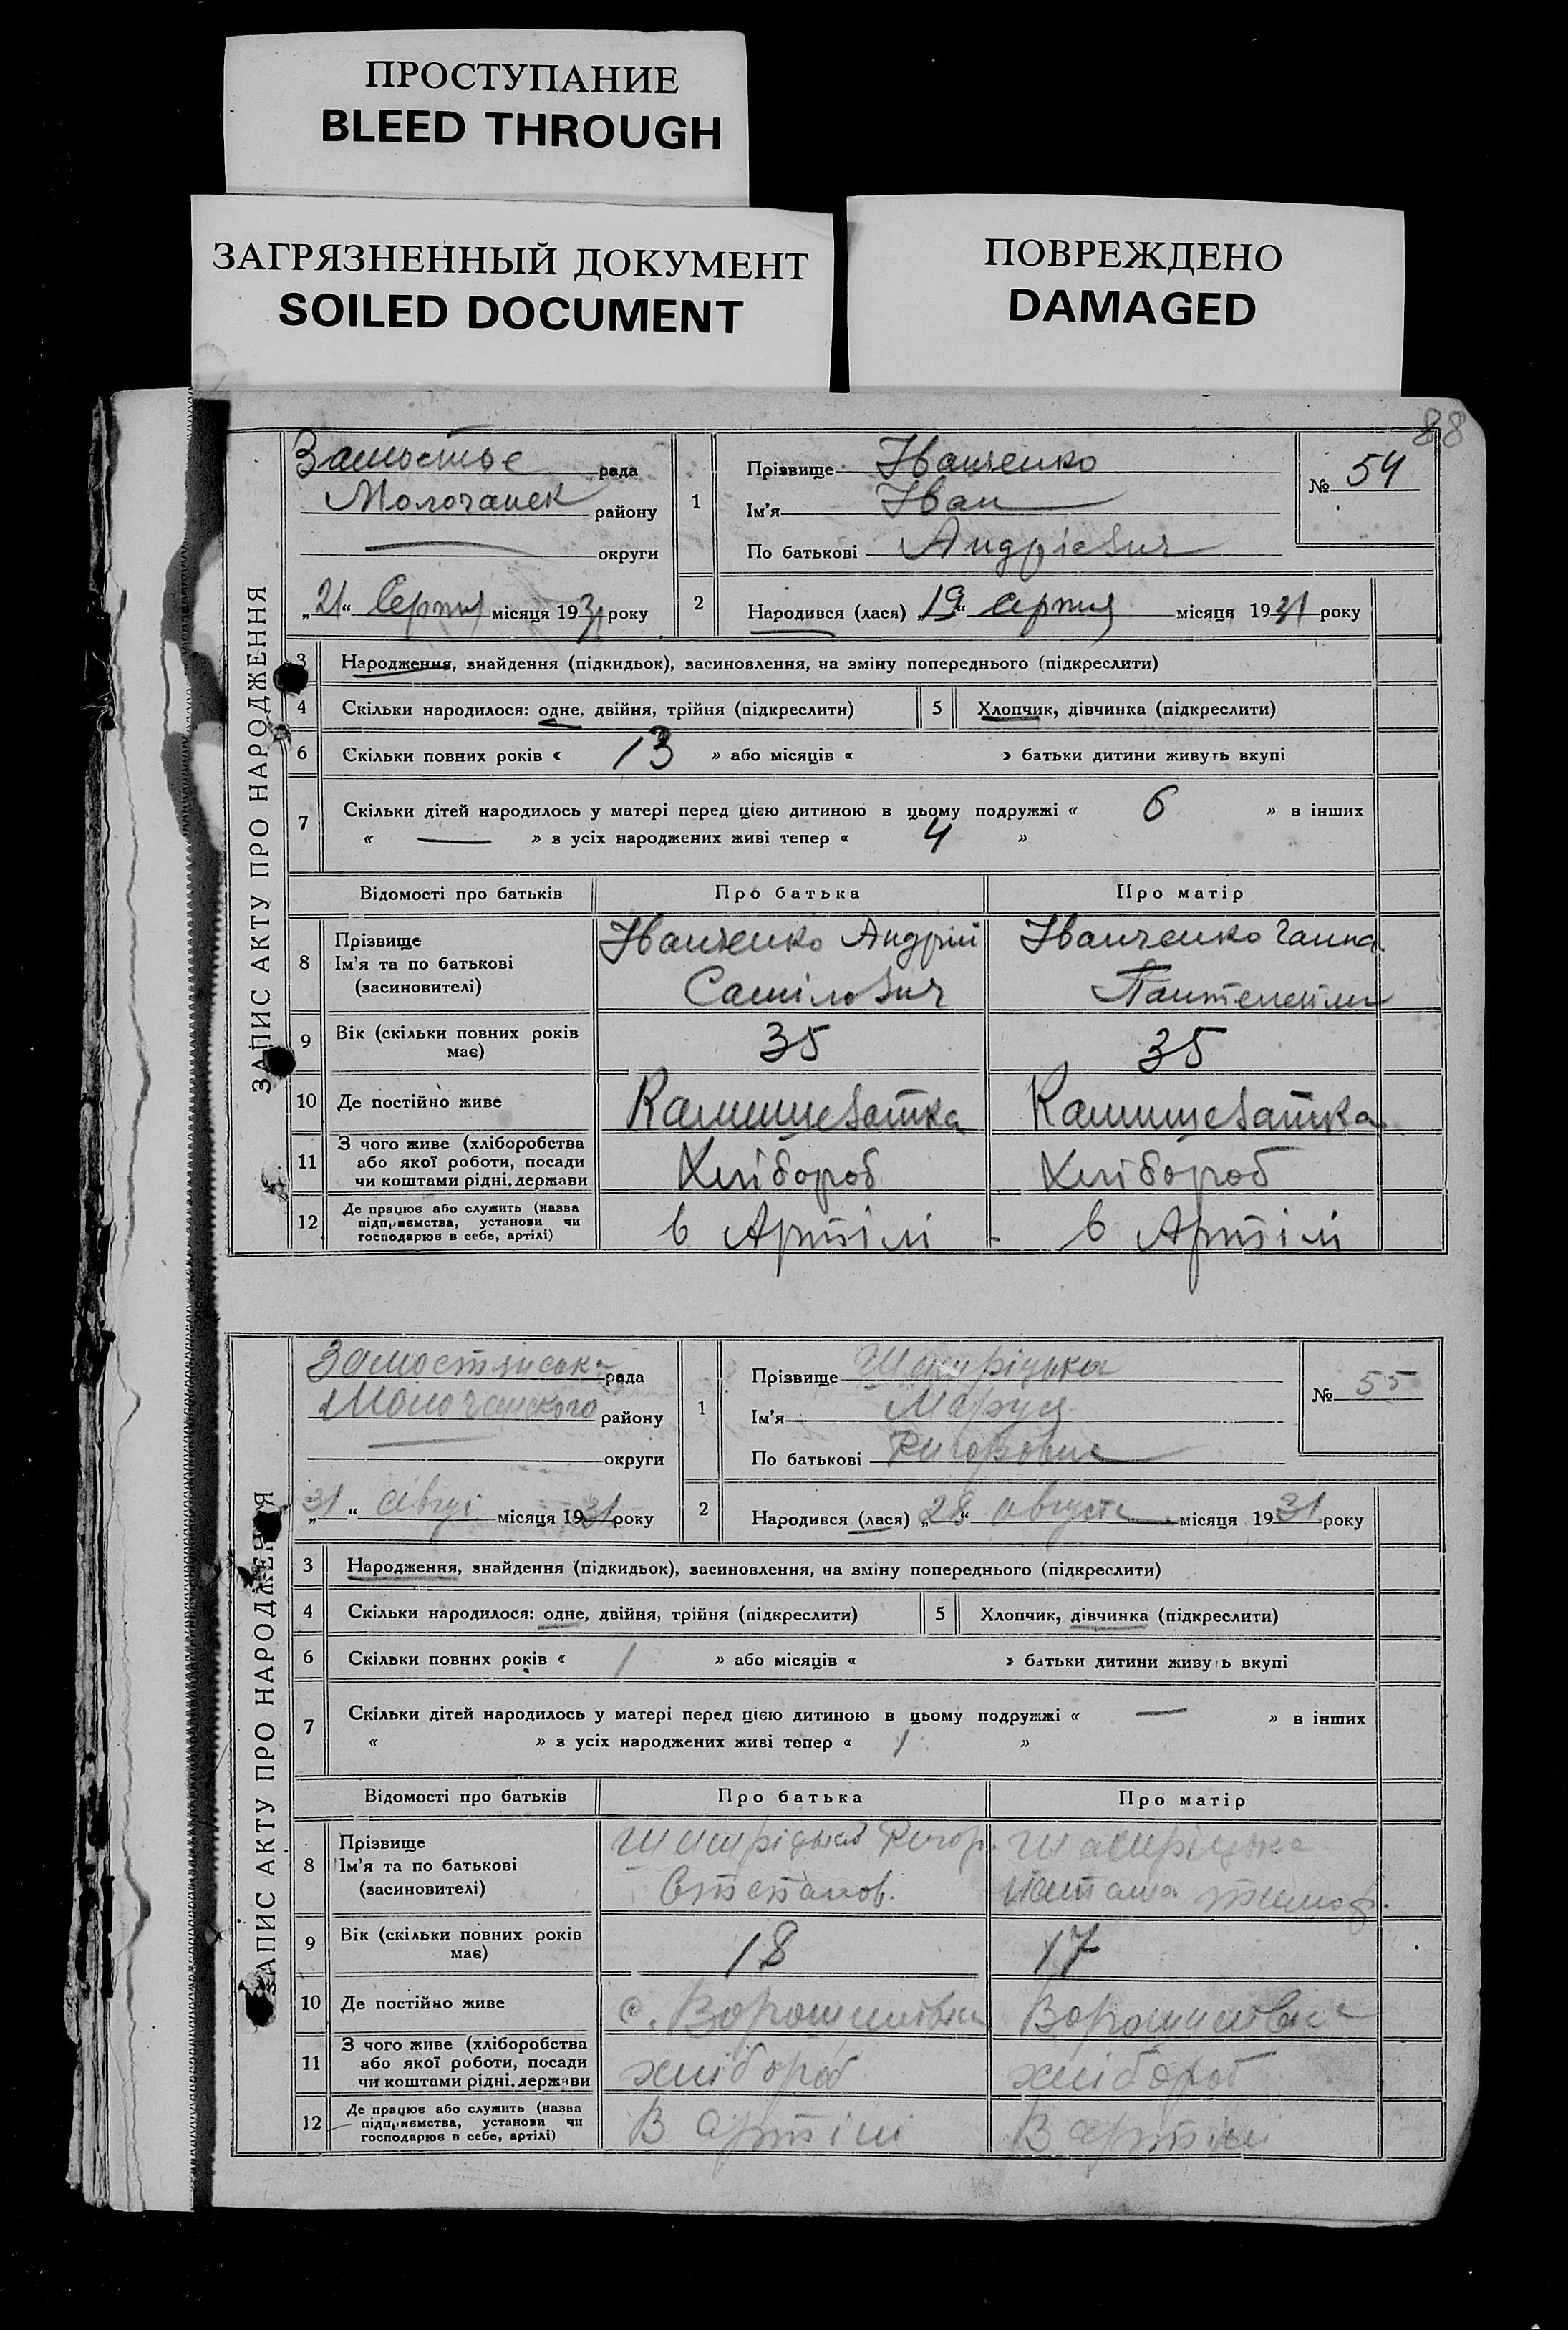 ПРОСТУПАНИЕ
BLEED THROUGH
ЗАГРЯЗНЕННЫЙ ДОКУМЕНТ
SOILED DOCUMENT
ПОВРЕЖДЕНО
DAMAGED
88
ЗАПИС АКТУ ПРО НАРОДЖЕННЯ
Замостье рада
Молочанск району
округи
„21“ Серпня місяця 1931 року
1
Прізвище Іванченко
Ім'я Іван
По батькові Андрієвич
№ 54
2 Народився (лася) „19“ серпня місяця 1931 року
3 Народження, знайдення (підкидьок), засиновлення, на зміну попереднього (підкреслити)
4 Скільки народилося: одне, двійня, трійня (підкреслити) 5 Хлопчик, дівчинка (підкреслити)
6 Скільки повних років « 13 » або місяців « » батьки дитини живуть вкупі
7 Скільки дітей народилось у матері перед цією дитиною в цьому подружжі « 6 » в інших
« — » з усіх народжених живі тепер « 4 »
Відомості про батьків Про батька Про матір
8 Прізвище
Ім'я та по батькові
(засиновителі)
Іванченко Андрій
Самілович
Іванченко Ганна
9 Вік (скільки повних років
має)
35 35
10 Де постійно живе Камишеватка Камишеватка
11 З чого живе (хліборобства
або якої роботи, посади
чи коштами рідні, держави
Хлібороб Хлібороб
12 Де працює або служить (назва
підприємства, установи чи
господарює в себе, артілі)
в Артілі в Артілі
ЗАПИС АКТУ ПРО НАРОДЖЕННЯ
Замостянська рада
Молочанского району
округи
„31“ місяця 1931 року
1
Прізвище
Ім'я Маруся
По батькові
№ 55
2 Народився (лася) „28“ августа місяця 1931 року
3 Народження, знайдення (підкидьок), засиновлення, на зміну попереднього (підкреслити)
4 Скільки народилося: одне, двійня, трійня (підкреслити) 5 Хлопчик, дівчинка (підкреслити)
6 Скільки повних років « 1 » або місяців « » батьки дитини живуть вкупі
7 Скільки дітей народилось у матері перед цією дитиною в цьому подружжі « — » в інших
« » з усіх народжених живі тепер « 1 »
Відомості про батьків Про батька Про матір
8 Прізвище
Ім'я та по батькові
(засиновителі)
Степанов.
9 Вік (скільки повних років
має)
18 17
10 Де постійно живе с. Ворошилівка Ворошилівка
11 З чого живе (хліборобства
або якої роботи, посади
чи коштами рідні, держави
хлібороб хлібороб
12 Де працює або служить (назва
підприємства, установи чи
господарює в себе, артілі)
В артілі В артілі